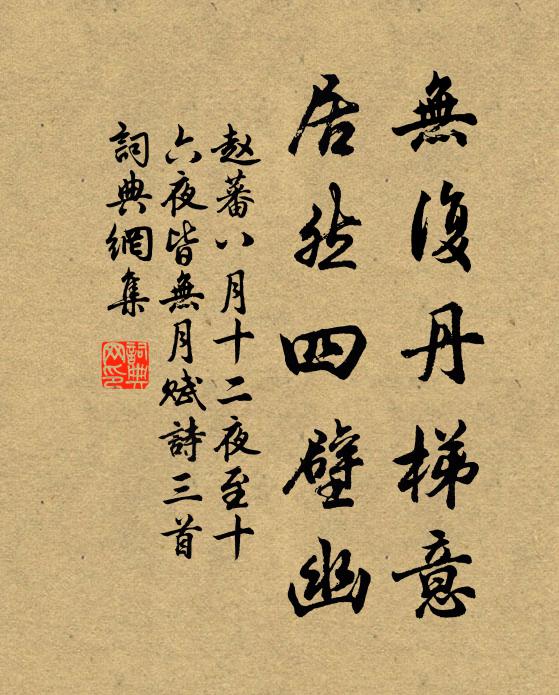 無復丹梯意
居然四壁幽
赵蕃八月十二夜至十
六夜皆無月赋詩三首
詞典網集
詞典
网印